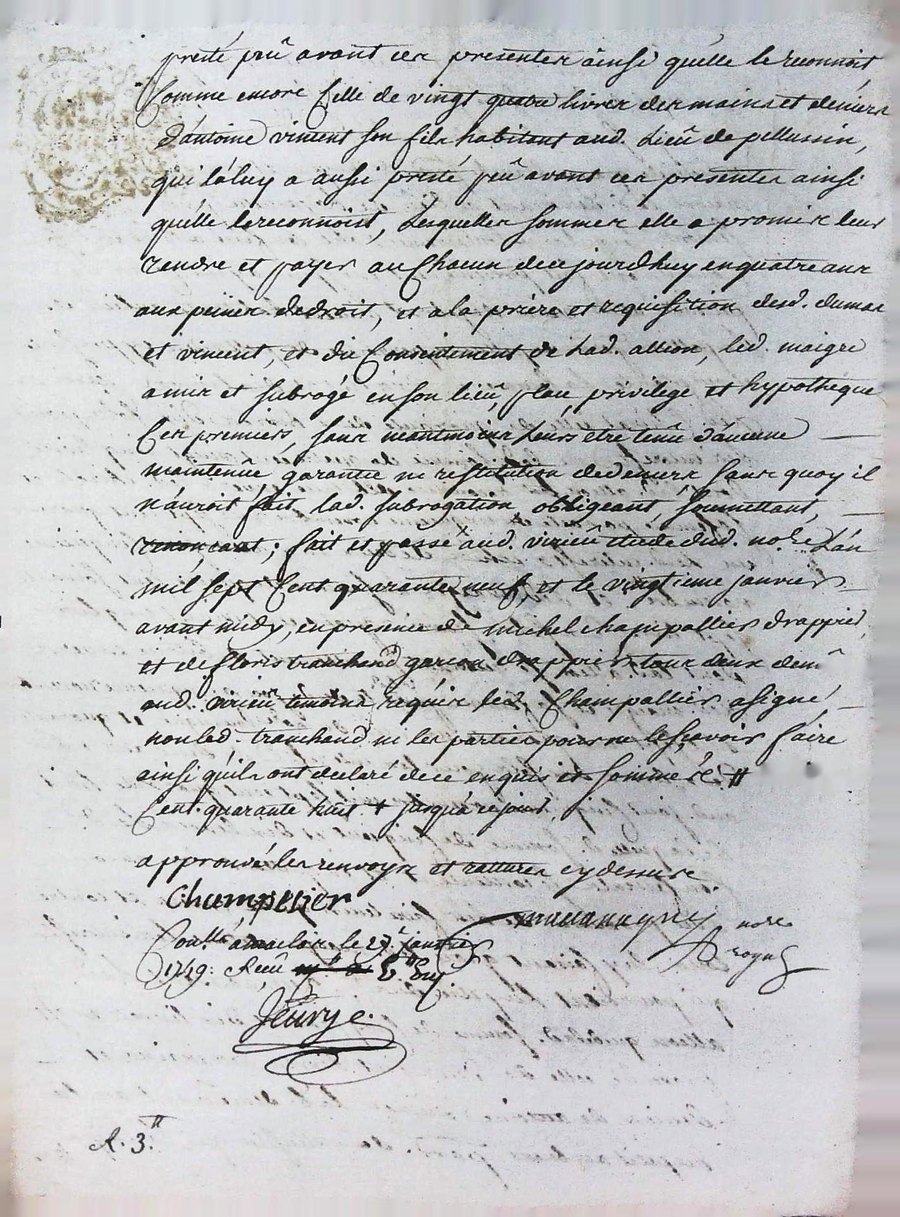 presté peu avant ces presentes ainsi qu'elle le reconnoit
Comme encore Celle de vingt quatre livres des mains et deniers
d'antoine vincent son fils habitant aud. Lieu de pellussin,
qui la luy a aussi presté peu avant ces presentes ainsi
qu'elle le reconnoist, Lesquelles sommes elle a promis leur
rendre et payer au Chacun de ce jourdhuy en quatre ans
aux peines de droit, et a la priere et requisition desd. dumas
et vincent, et du Consentement de Lad. allion, led. maigre
a mis et subrogé en son lieu, place, privilege et hypotheque
Ces premiers, sans neantmoins Leurs etre tenû d'aucune
maintenüe garantie ni restitution de deniers sans quoy il
n'auroit fait lad. subrogation, obligeant, soumettant,
renonçant; fait et passé aud. virieu etude dud. nore. L'an
mil sept Cent quarante neuf, et le vingtieme janvier
avant midy, en presence de michel champallier drappier,
et de floris tranchand garcon drappier tous deux dem.
aud. virieu temoins requis led. Champallier a signé,
non led. tranchand ni les parties pour ne le sçavoir faire
ainsi qu'ils ont declaré de ce enquis et sommés #
Cent quarante huit + jusqu'à ce jour.
approuvé les renvoys et ratures cy dessus
Champelier
nore
royal
Conllé a malleval le 27e janvier
1749. Reçu
Jeurye.
R. 3.tt